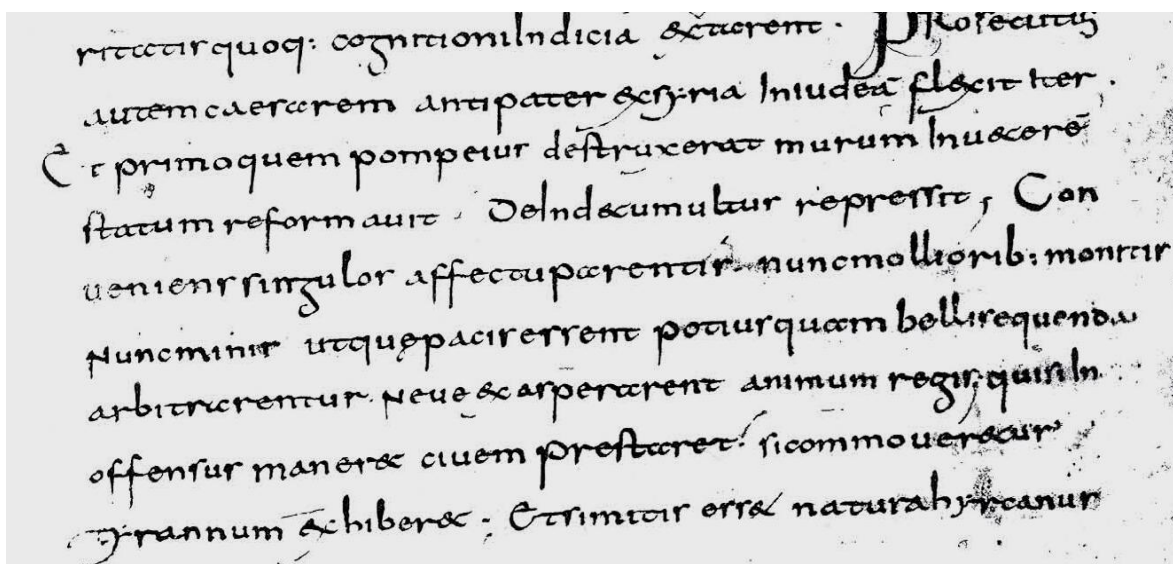 ritatis quoq: cognitioni Indicia extarent . Prosecutus
autem caesarem antipater exsyria Iniudeā flexit Iter .
Et primo quem pompeius destruxerat murum Inu&erē
statum reformauit . DeInd&umultus repressit ; Con
ueniens singulos affectu parentis . nunc mollïorib; monitis
Nunc minis utque pacis essent potius quam belli sequenda
arbitrarentur . Neue exasperarent animum regis; qui si In
offensus maner& ciuem prestaret . si commouer&ur
tyrannum exhiber& . Et si mitis ess& natura hyrcanus